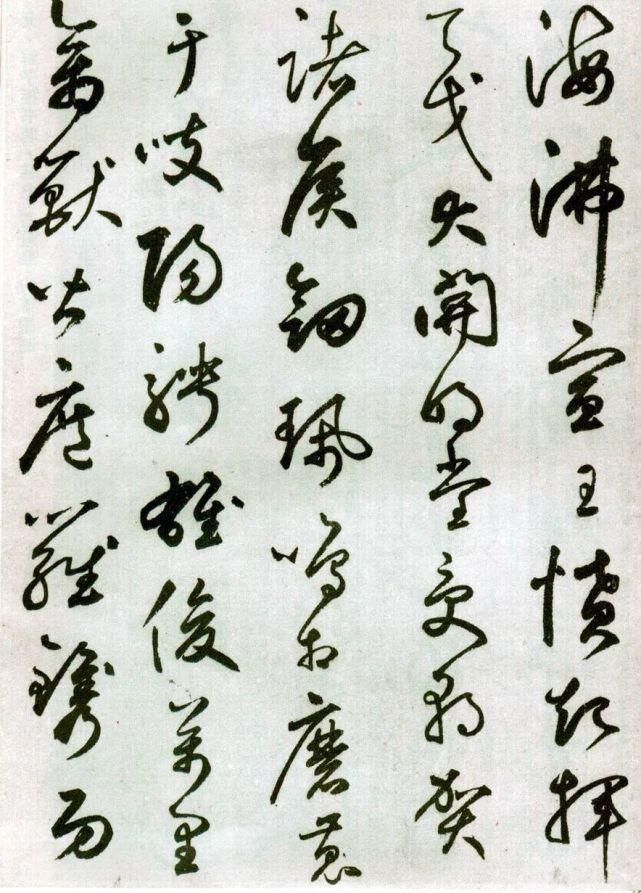 海沸宣王憤起揮
天戈大開明堂受朝賀
諸侯劒珮鳴相磨蒐
于岐陽騁雄俊萬里
禽獸皆遮羅鐫功